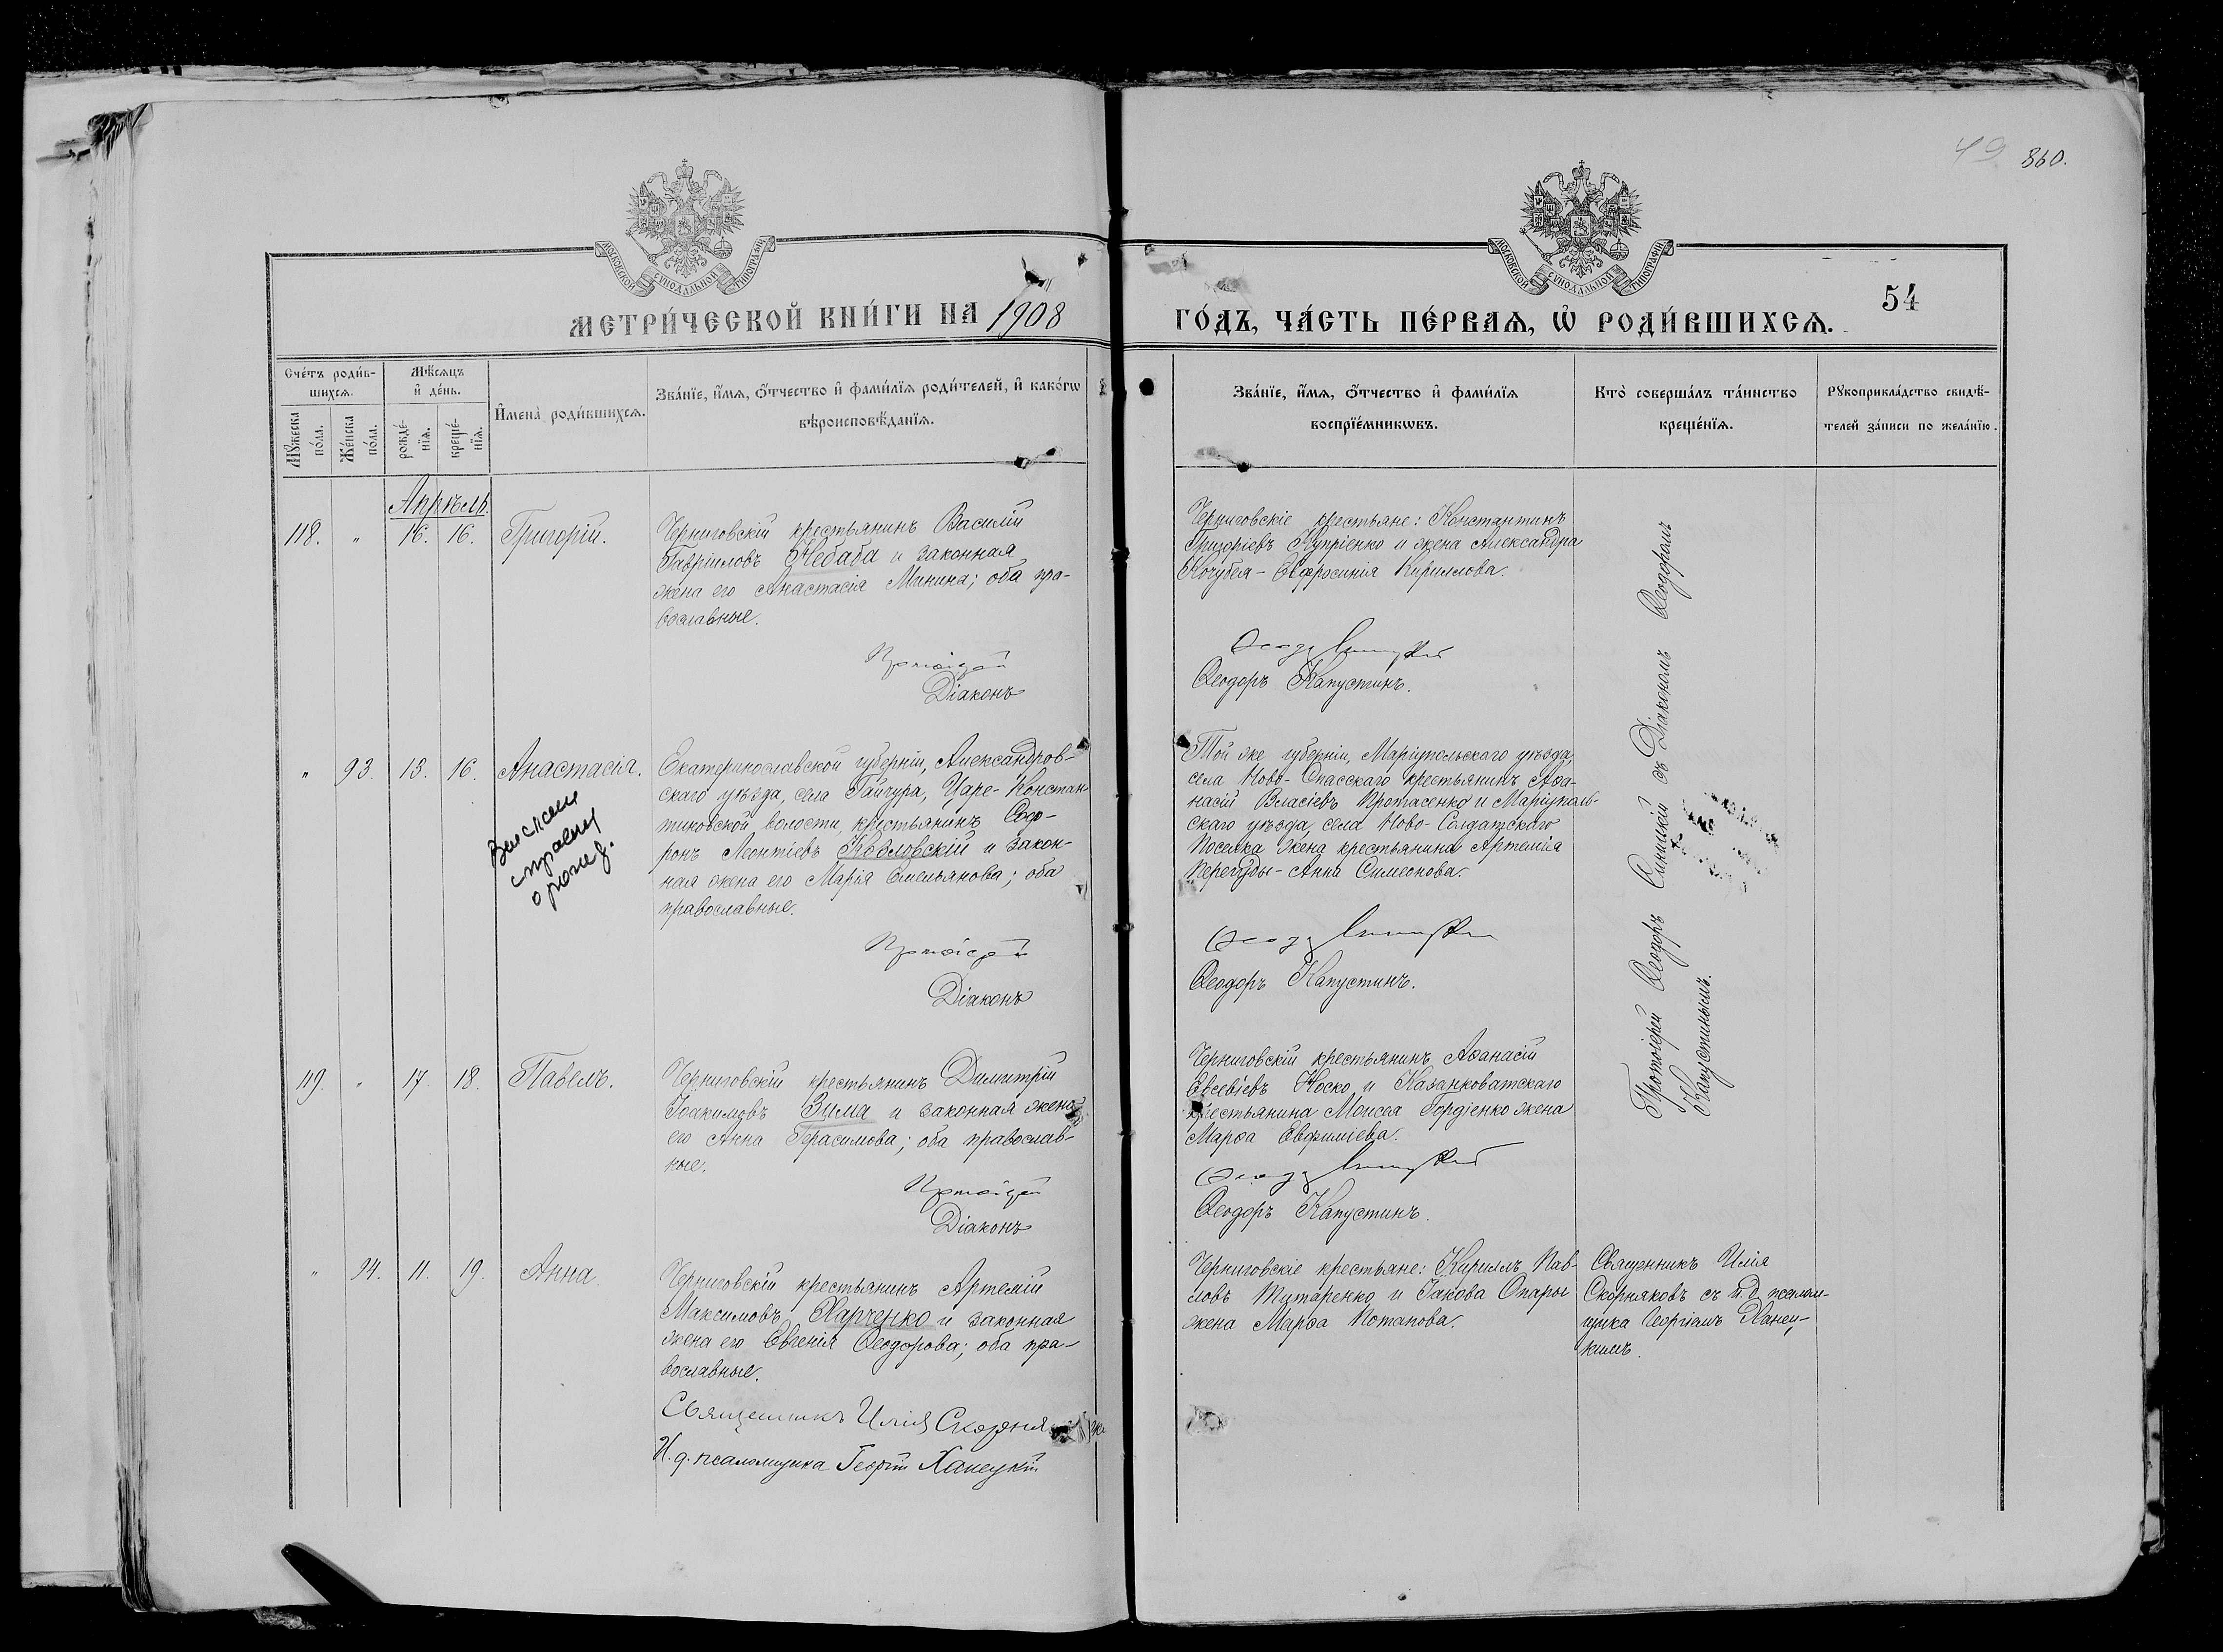 49 860.
МОСКОВСКОЙ СѴНОДАЛЬНОЙ ТИПОГРАФІИ
МОСКОВСКОЙ СѴНОДАЛЬНОЙ ТИПОГРАФІИ
МЕТРИ́ЧЕСКОЙ КНИ́ГИ НА 1908
ГО́ДЪ, ЧА́СТЬ ПЕ́РВАѦ, Ѡ҆ РОДИ́ВШИХСѦ.
54
Сче́тъ роди́в-
шихсѧ.
Мѣ́сѧцъ
и҆ де́нь.
Мꙋ́жеска
по́ла.
Же́нска
по́ла.
рожде́-
нїѧ.
креще́-
нїѧ.
И҆мена̀ роди́вшихсѧ.
Зва́нїе, и҆́мѧ, ѻ҆́тчество и҆ фами́лїѧ роди́телей, и҆ како́гѡ
вѣроисповѣ́данїѧ.
Зва́нїе, и҆́мѧ, ѻ҆́тчество и҆ фами́лїѧ
воспрїе́мникѡвъ.
Кто̀ соверша́лъ та́инство
креще́нїѧ.
Рꙋкоприкла́дство свидѣ́-
телей за́писи по жела́нїю.
Апрѣль.
118. " 16. 16. Григорій.
Черниговскій крестьянинъ Василій
Гавріиловъ Небаба и законная
жена его Анастасія Минина; оба пра-
вославные.
Протоіерей
Діаконъ
Черниговскіе крестьяне: Константинъ
Григоріевъ Купріенко и жена Александра
Кочубея - Евфросинія Кириллова.
Ѳеодоръ Синицкій
Ѳеодоръ Капустинъ.
Протоіерей Ѳеодоръ Синицкій съ Діакономъ Ѳеодоромъ
Капустинымъ.
" 93. 13. 16. Анастасія.
Екатеринославской губерніи, Александров-
скаго уѣзда, села Гайчура, Царе-Констан-
тиновской волости, крестьянинъ Софо-
ронъ Леонтіевъ Козловскій и закон-
ная жена его Марія Емельянова; оба
православные.
Протоіерей
Діаконъ
Той же губерніи, Маріупольскаго уѣзда,
села Ново-Спасскаго крестьянинъ Аѳа-
насій Власіевъ Протасенко и Маріуполь-
скаго уѣзда, села Ново-Солдатскаго
поселка жена крестьянина Артемія
- Анна Симеонова.
Ѳеодоръ Синицкій
Ѳеодоръ Капустинъ.
119. " 17. 18. Павелъ.
Черниговскій крестьянинъ Димитрій
Іоакимовъ Зима и законная жена
его Анна Герасимова; оба православ-
ные.
Протоіерей
Діаконъ
Черниговскій крестьянинъ Аѳанасій
Евсевіевъ Носко и Казанковатскаго
крестьянина Моисея Гордіенко жена
Марѳа Евфиміева.
Ѳеодоръ Синицкій
Ѳеодоръ Капустинъ.
" 94. 11. 19. Анна.
Черниговскій крестьянинъ Артемій
Максимовъ Харченко и законная
жена его Евгенія Ѳеодорова; оба пра-
вославные.
Священникъ Илія
И. д. псаломщика Георгій Ханецкій
Черниговскіе крестьяне: Кириллъ Пав-
ловъ Титаренко и Іакова Опары
жена Марѳа Потапова.
Священникъ Илія
Скорняковъ съ и. д. псалом-
щика Георгіемъ Ханец-
кимъ.